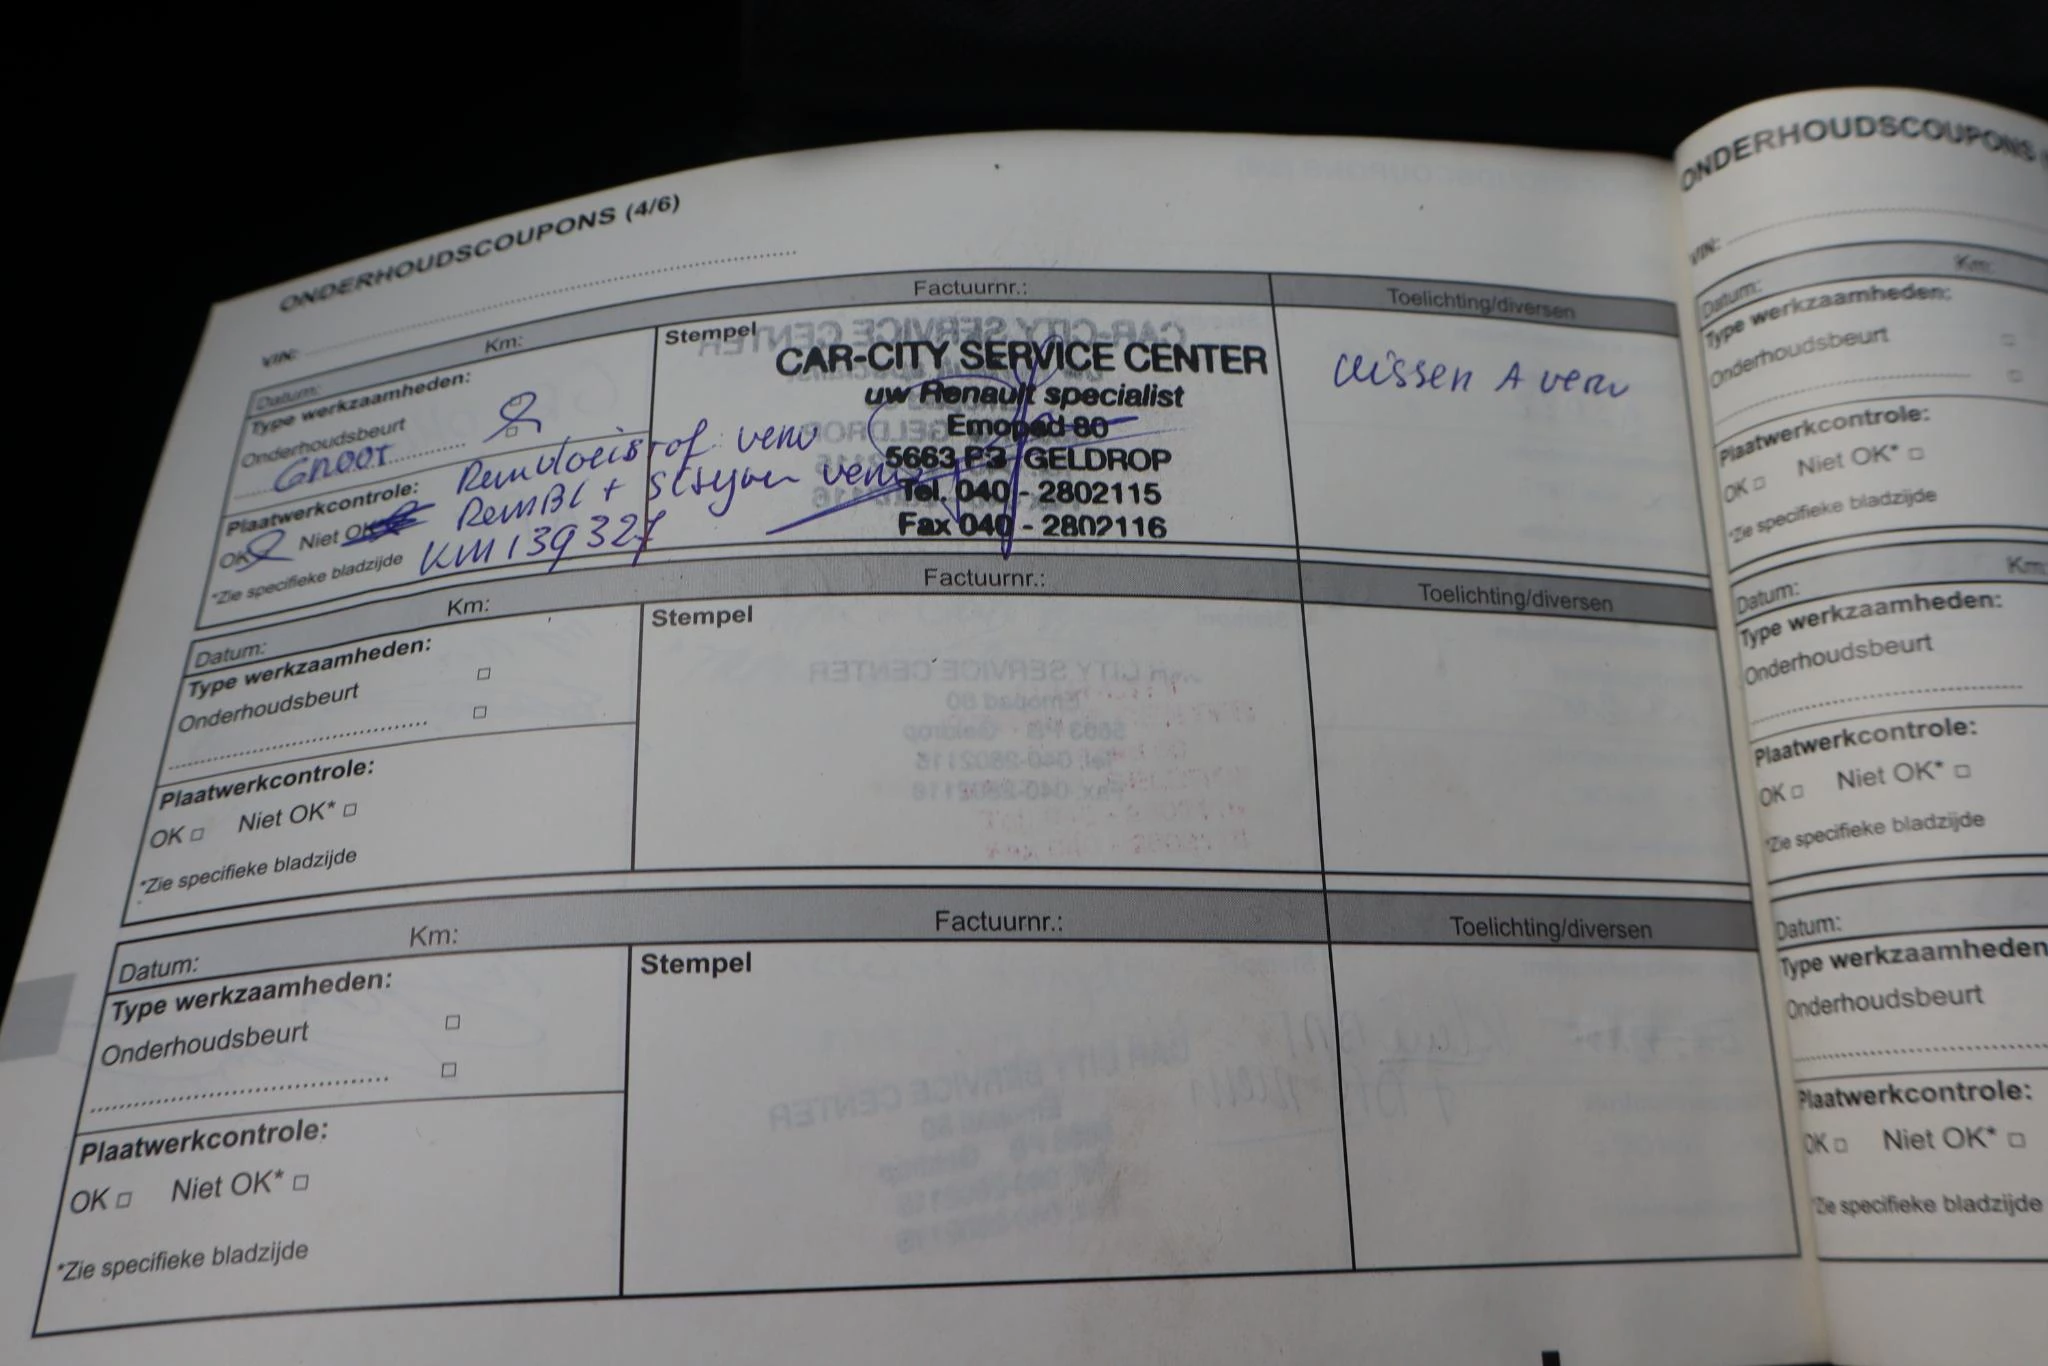 ONDERHOUDSCOUPONS (4/6)
VIN:
Datum: Km: Factuurnr.: Toelichting/diversen
Type werkzaamheden:
Onderhoudsbeurt
Groot
Plaatwerkcontrole:
OK Niet OK
*Zie specifieke bladzijde
Remvloeistof verv
RemBl + schyven verv
KM 139327
Stempel
CAR-CITY SERVICE CENTER
uw Renault specialist
Emopad 80
5663 P3 GELDROP
Tel. 040 - 2802115
Fax 040 - 2802116
wissen A verv
Datum: Km: Factuurnr.: Toelichting/diversen
Type werkzaamheden:
Onderhoudsbeurt
Plaatwerkcontrole:
OK Niet OK*
*Zie specifieke bladzijde
Stempel
Datum: Km: Factuurnr.: Toelichting/diversen
Type werkzaamheden:
Onderhoudsbeurt
Plaatwerkcontrole:
OK Niet OK*
*Zie specifieke bladzijde
Stempel
ONDERHOUDSCOUPONS
VIN:
Datum: Km:
Type werkzaamheden:
Onderhoudsbeurt
Plaatwerkcontrole:
OK Niet OK*
*Zie specifieke bladzijde
Datum: Km:
Type werkzaamheden:
Onderhoudsbeurt
Plaatwerkcontrole:
OK Niet OK*
*Zie specifieke bladzijde
Datum:
Type werkzaamheden
Onderhoudsbeurt
Plaatwerkcontrole:
OK Niet OK*
*Zie specifieke bladzijde